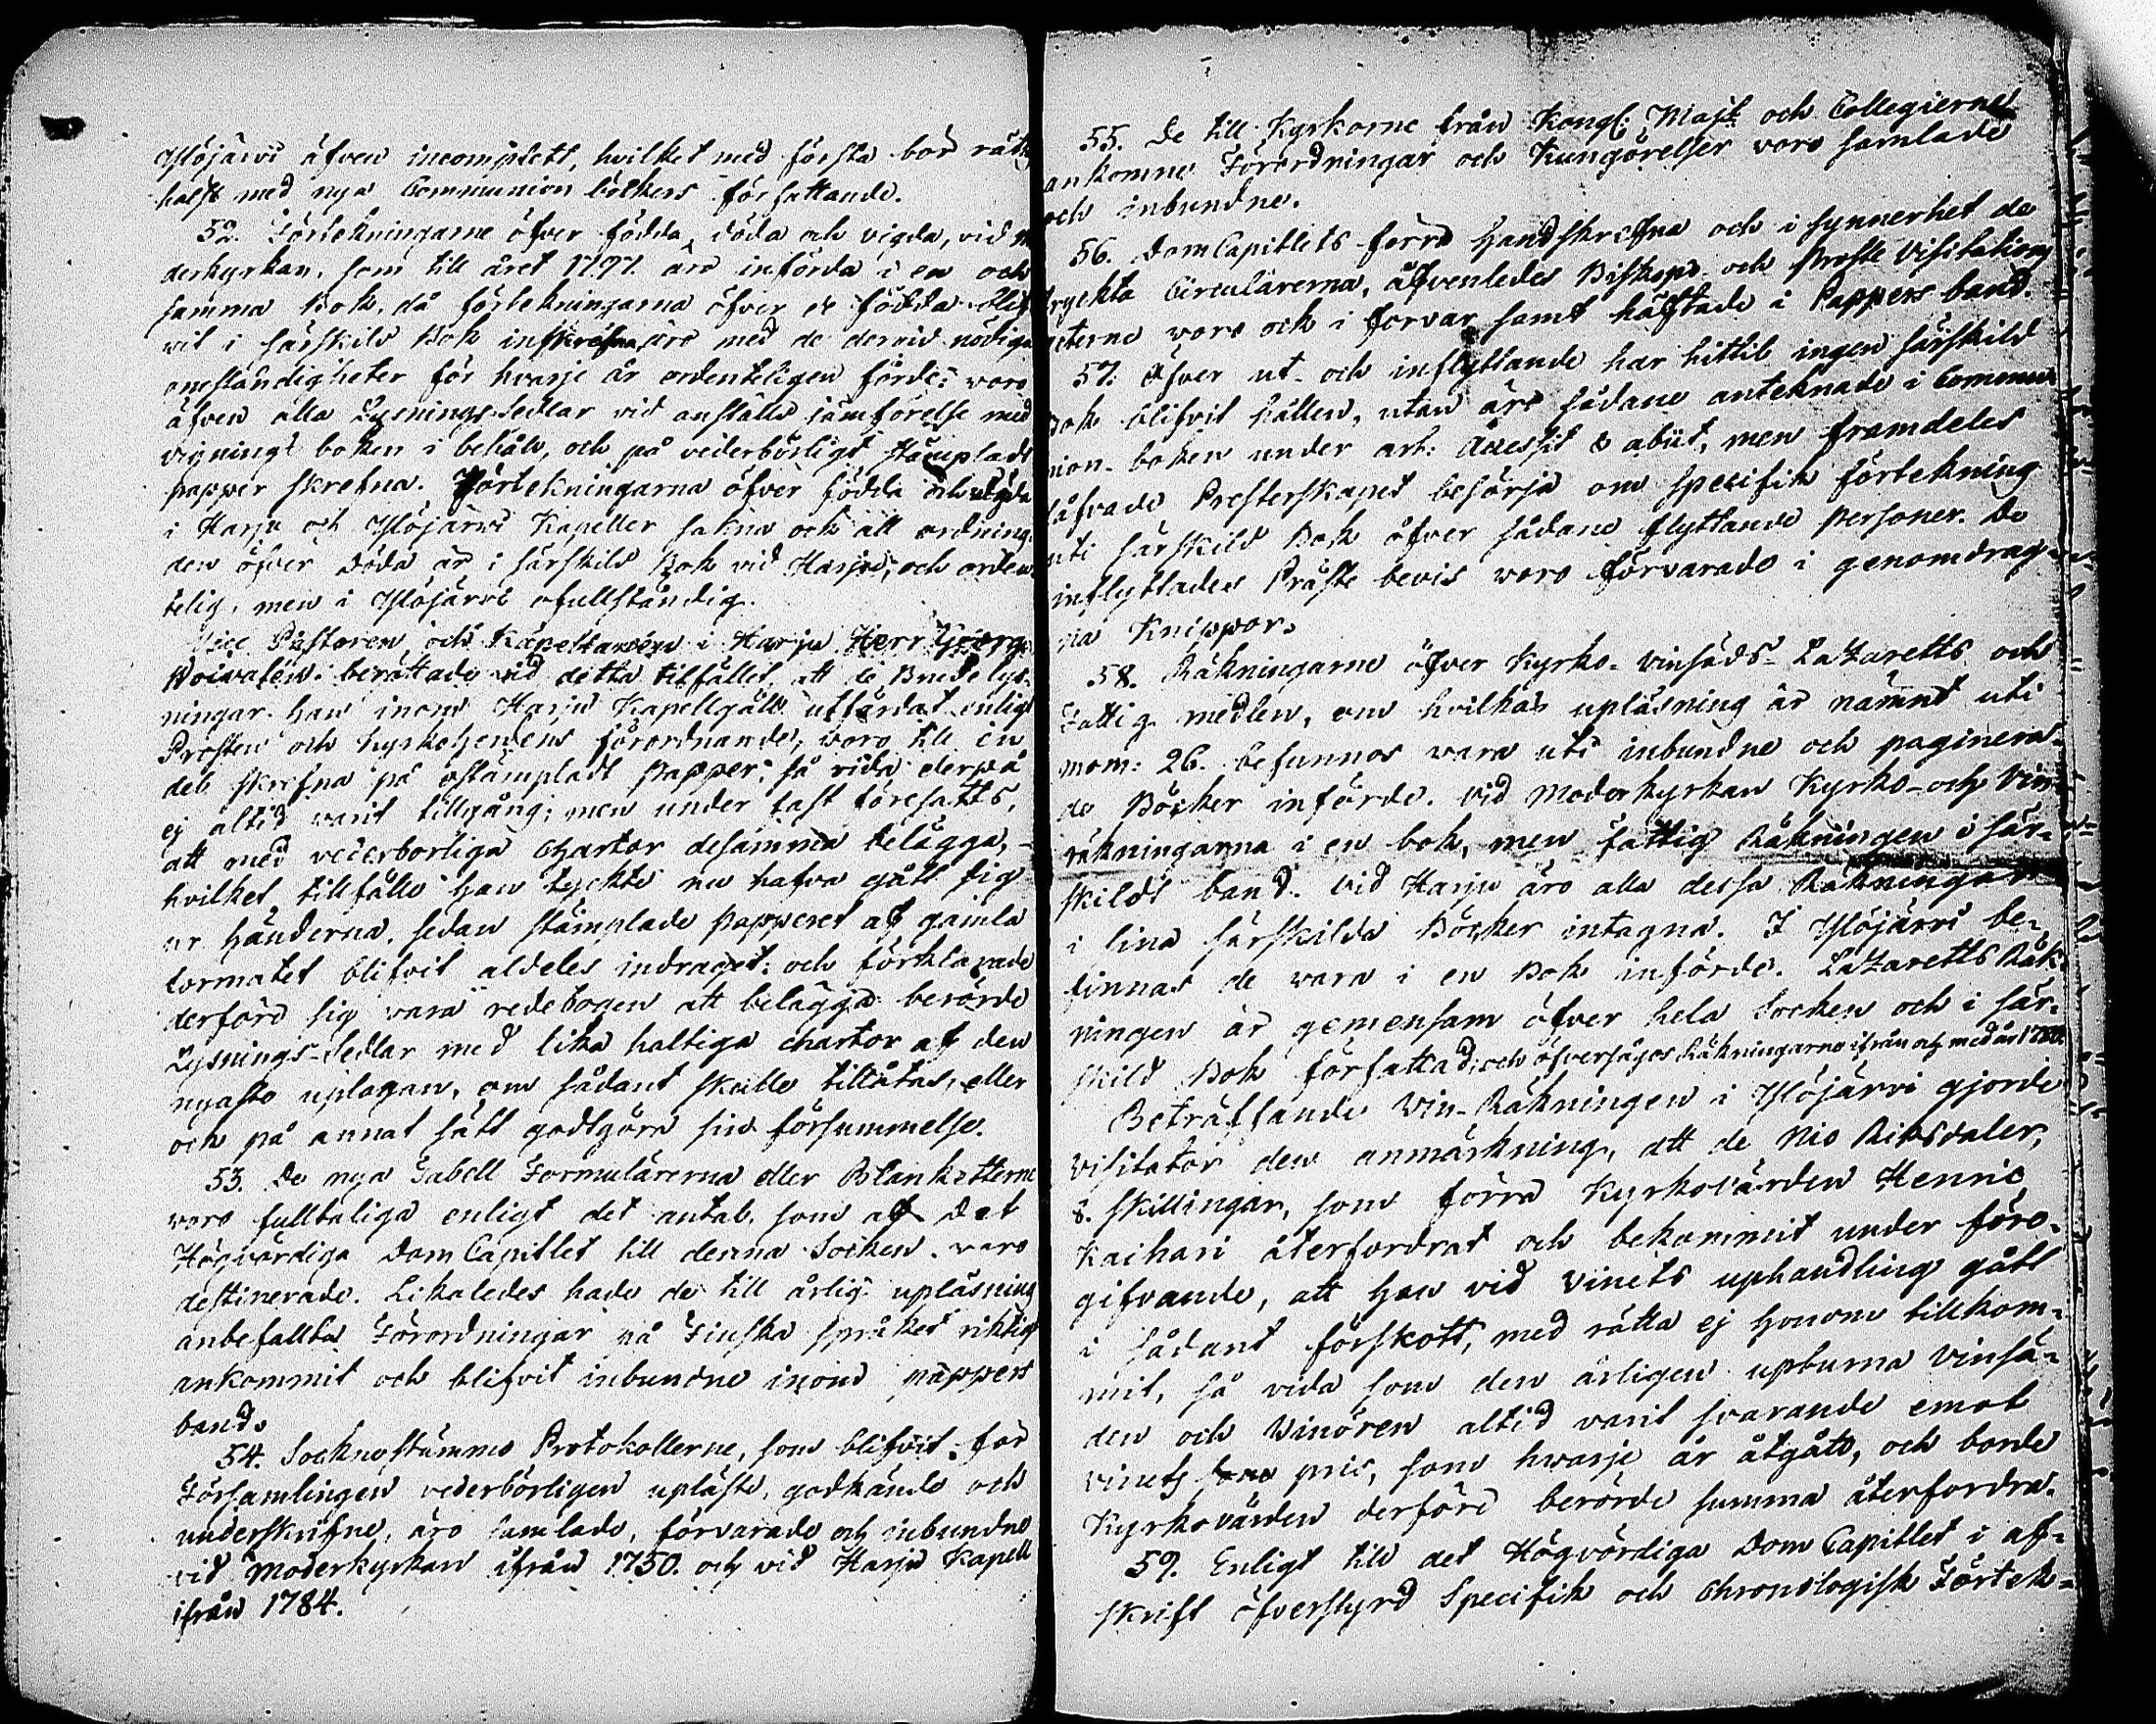 Ylöjärvi äfven incomplett, hvilket med första bör rätt
hälst med nya Communion böckers författande.
52. Förtekningarne öfver födda, döda och vigda, vid
derkyrkan, som till året 1797. äro införda i en och
samma Bok, då förtekningarna öfver de födda blif
vit i särskild Bok inskrefna, äro med de dervid nödiga
omständigheter för hvarje år ordenteligen förde; voro
äfven alla Lysnings-Sedlar vid anställd jämförelse med
vignings boken i behåll, och på vederbörligt stämpladt
papper skrefna. Förtekningarna öfver födda och vigda
i Harju och Ylöjärvi Kapeller sakna och all ordning,
den öfver Döda är i särskild Bok vid Harju, och orden-
telig, men i Ylöjärvi ofullständig.
Vice Pastoren och Kapellanen i Harju Herr Georg
Poivalén berättade vid detta tillfället, att de Brudelys-
ningar han inom Harju Kapellgäld utfärdat enligt
Prosten och Kyrkoherdens förordnande, voro till en
del skrifna på ostämpladt Papper, så vida derpå
ej altid varit tillgång; men under fast föresatts,
att med vederbörliga Chartor desamma belägga, -
hvilket tillfälle han tyckte nu hafva gått sig
ur händerna, sedan stämplade papperet af gamla
formatet blifvit aldeles indraget; och förklarade
derföre sig vara redebogen att belägga berörde
Lysnings-Sedlar med lika haltiga chartor af den
nyaste uplagan, om sådant skulle tillåtas, eller
och på annat sätt godtgöra sin försummelse.
53. De nya Tabell Formulärerna eller Blanketterne
voro fulltaliga enligt det antal, som af Det
Högvördiga Dom Capitlet till denna Socken voro
destinerade. Likaledes hade de till årlig upläsning
anbefallta Förordningar på Finska språket riktigt
ankommit och blifvit inbundne inom pappers
band.
54. Socknestämmo Protokollerne, som blifvit för
Församlingen vederbörligen upläste, godkände och
underskrifne, äro samlade, förvarade och inbundne
vid Moderkyrkan ifrån 1750. och vid Harju Kapell
ifrån 1784.
55. De till Kyrkorne från Kongl: Maj:t och Collegierne
ankomne Förordningar och Kungörelser voro samlade
och inbundne.
56. DomCapitlets förra Handskrefna och i synnerhet de
tryckta Circulärerna, äfvenledes Biskops- och Proste Visitations
acterne voro och i förvar samt häftade i Pappers band.
57. Öfver ut- och inflyttande har hittils ingen särskild
Bok blifvit hållen, utan äro sådane anteknade i Commu-
nion-boken under art: Accessit & abiit, men framdeles
låfvade Presterskapet besörja om specifik förtekning
uti särskild Bok öfver sådane flyttande Personer. De
inflyttades Präste bevis voro förvarade i genomdrag-
na Knippor.
58. Räkningarne öfver Kyrko- vinsäds- Lazaretts och
Fattig medlen, om hvilkas upläsning är nämnt uti
mom: 26. befunnos vara uti inbundne och paginera-
de Böcker införde. Vid Moderkyrkan Kyrko- och Vin-
räkningarna i en bok, men fattig Räkningen i sär-
skildt band. Vid Harju äro alla dessa Räkningar
i sina särskilda Böcker intagna. I Ylöjärvi be-
finnas de vara i en Bok införde. Lazaretts Räk-
ningen är gemensam öfver hela Socken och i sär-
skild Bok författad; och öfversågos Räkningarne ifrån och med år
Beträffande Vin-Räkningen i Ylöjärvi gjorde
Visitator den anmärkning, att de Nio Riksdaler,
8. skillingar, som förra Kyrkovärden Henric
Kaihari återfordrat och bekommit under före-
gifvande, att han vid vinets uphandling gått
i sådant förskott, med rätta ej honom tillkom-
mit, så vida som den årligen upburna vinsä-
den och Vinören altid varit svarande emot
vinets pris, som hvarje år åtgått, och borde
Kyrkovärden derföre berörde summa återfordra.
59. Enligt till det Högvördiga Dom Capitlet i af-
skrift öfverstyrd Specifik och Chronologisk Förtek-